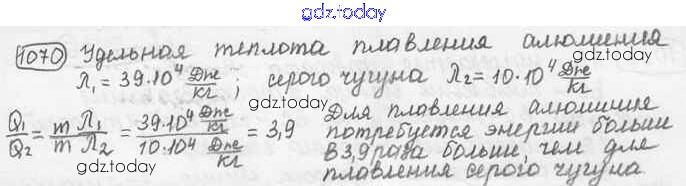 gdz.today
1070 Удельная теплота плавления алюминия
λ₁ = 39·10⁴ Дж/кг ; серого чугуна λ₂ = 10·10⁴ Дж/кг
gdz.today
gdz.today
Q₁/Q₂ = m λ₁/m λ₂ = 39·10⁴ Дж/кг / 10·10⁴ Дж/кг = 3,9
Для плавления алюминия
потребуется энергии больши
в 3,9 раза больши, чем для
плавления серого чугуна
gdz.today
gdz.today
gdz.today